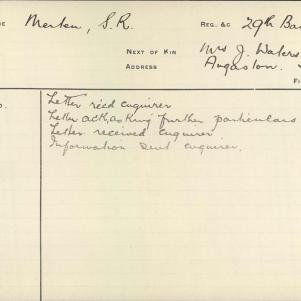 Merten, S.R.
REG. &C 29th Ba
NEXT OF KIN Mrs J. Waters
ADDRESS Angaston.
Letter recd enquirer
Letter ack, asking further particulars
Letter received enquirer
Information sent enquirer.